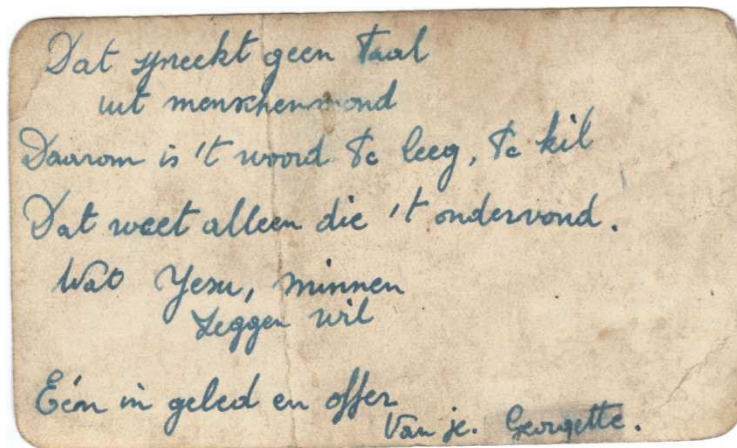 Dat spreekt geen taal
uit menschenmond
Daarom is 't woord te leeg, te kil
Dat weet alleen die 't ondervond.
Wat Yesu, minnen
zeggen wil
Eén in gebed en offer
Van je. Georgette.